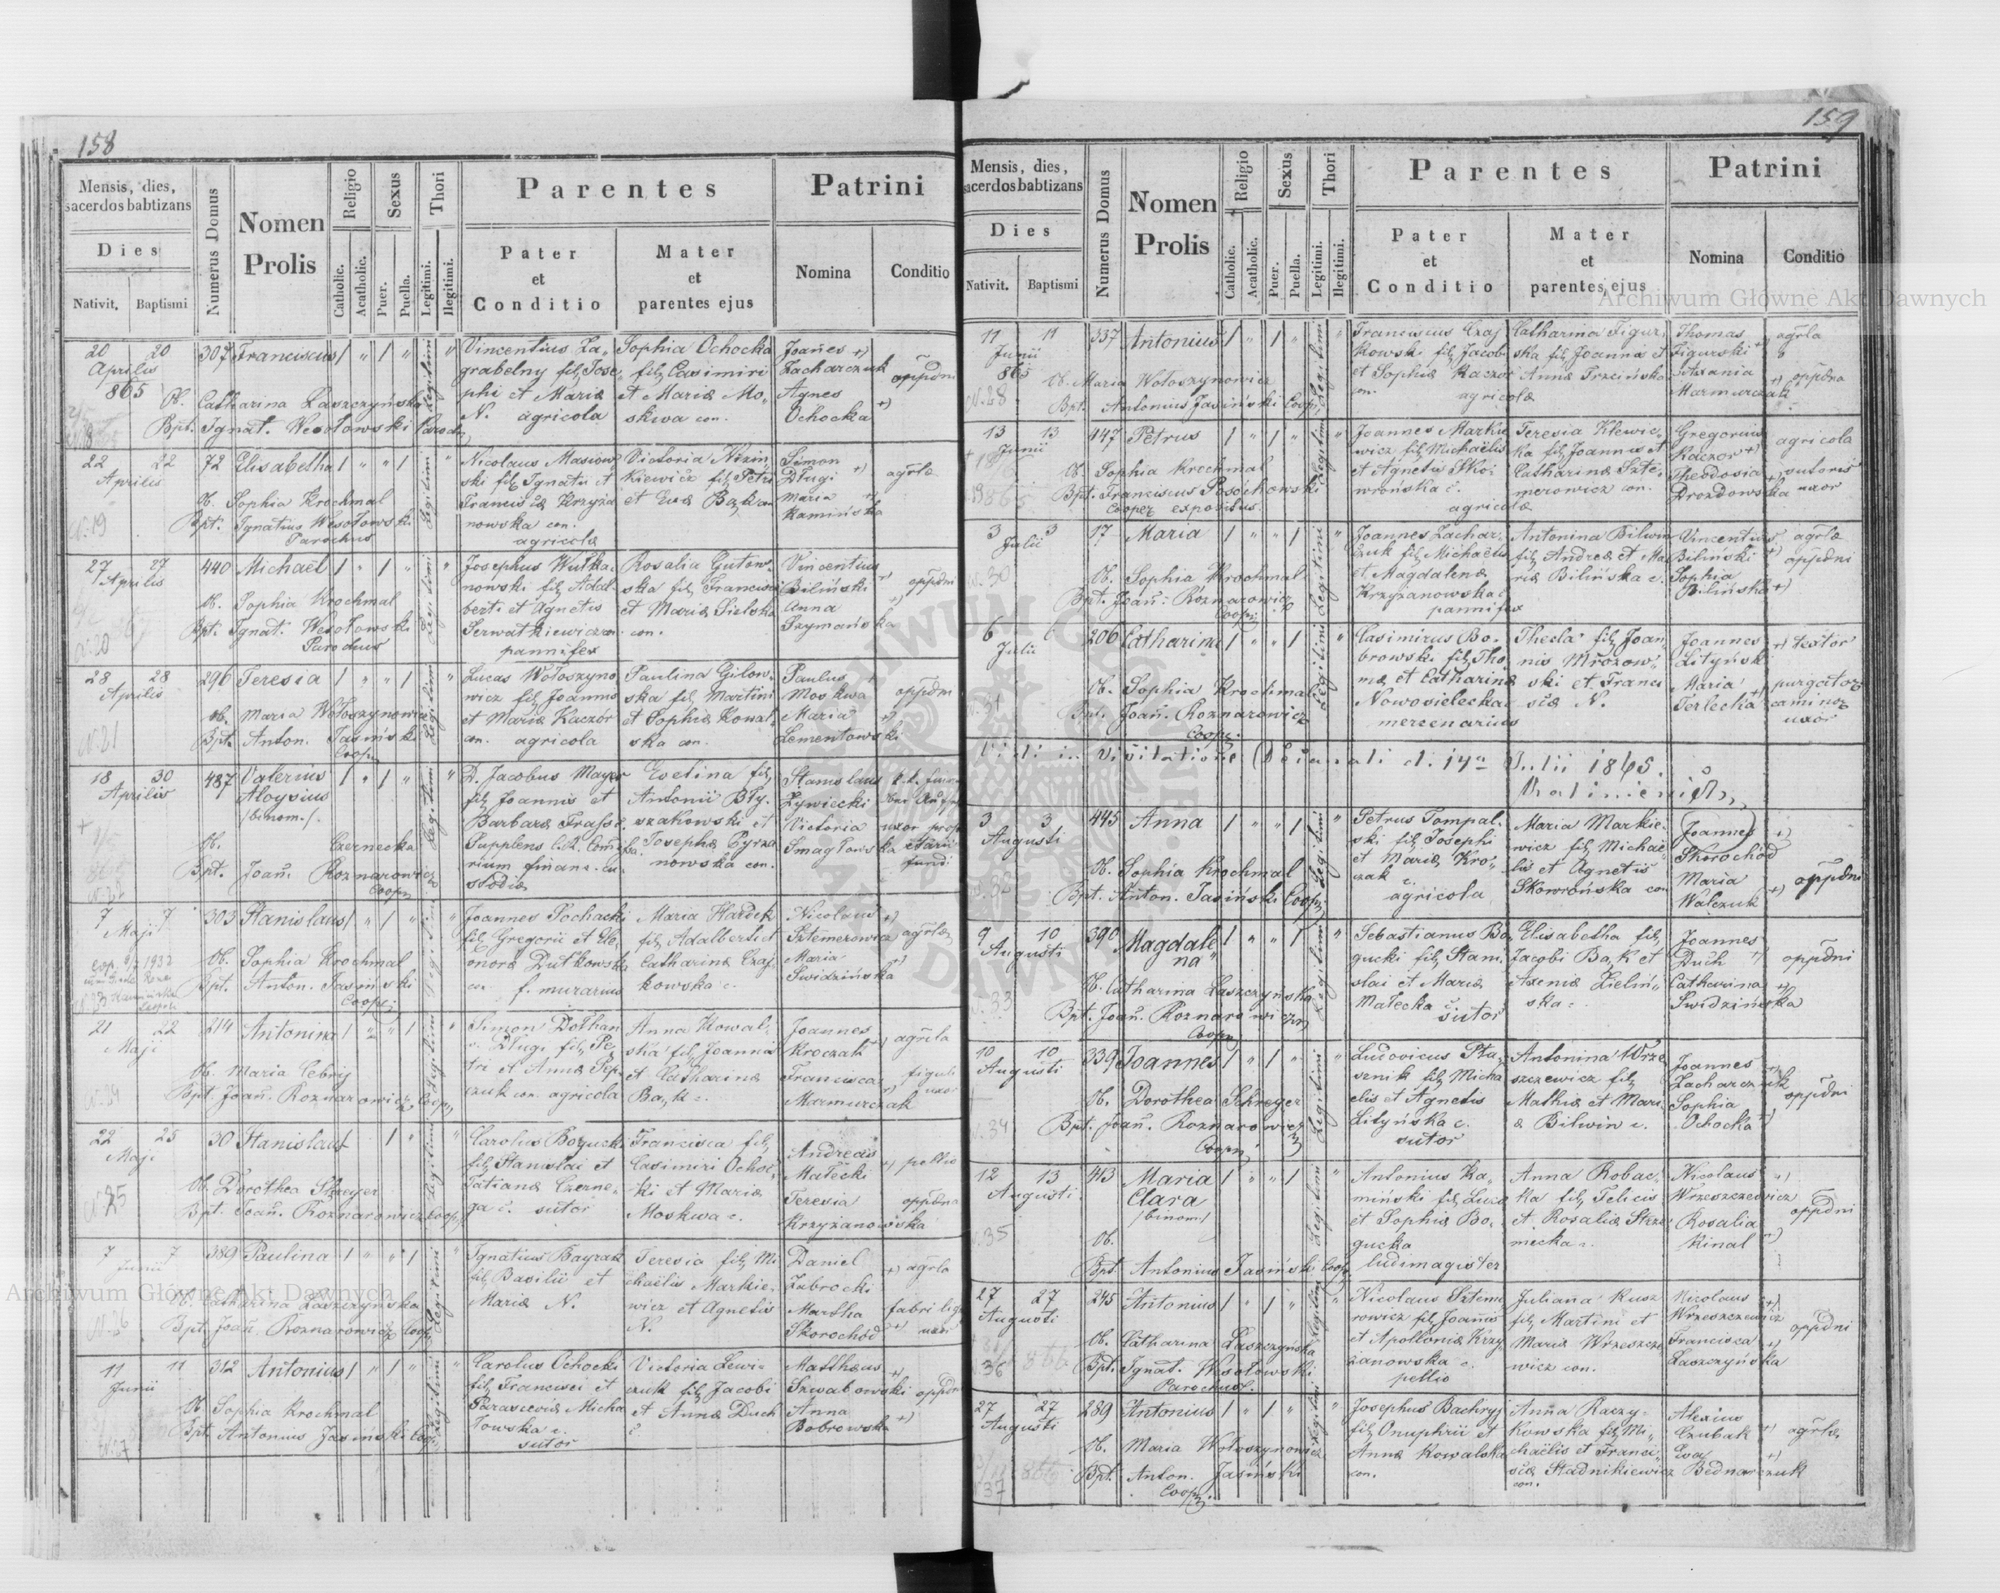 158
Mensis, dies,
sacerdos babtizans
Dies
Nativit. Baptismi
Numerus Domus
Nomen
Prolis
Religio
Catholic.
Acatholic.
Sexus
Puer.
Puella.
Thori
Legitimi.
Illegitimi.
Parentes
Pater
et
Conditio
Mater
et
parentes ejus
Patrini
Nomina
Conditio
20 20 307 Franciscus 1 " 1 "
Aprilis
865
Ob. Catharina Łaszczyńska
Bpt. Ignat. Wesołowski Paroch.
Legitimi
Vincentius Za-
grabelny fil. Jose-
phi et Mariæ
N. agricola
Sophia Ochocka
fil. Casimiri
et Mariæ Mo-
skwa con.
Joañes +)
Zacharczuk
Agnes
Ochocka +)
oppidni
22 22 72 Elisabetha 1 " " 1
Aprilis
Ob. Sophia Krochmal
Bpt. Ignatius Wesołowski
Parochus
No. 19
Nicolaus Masiow-
ski fil. Ignatii et
Franciscæ Krzyża-
nowska con.
agricolæ
Victoria Nizin-
kiewicz fil. Petri
et Evæ Bąk con.
Simon
Długi
Maria
Kamińska
agrlæ
27 27 440 Michaël 1 " 1 "
Aprilis
Ob. Sophia Krochmal
Bpt. Ignat. Wesołowski
Parochus
No. 20
Josephus Wułka-
nowski fil. Adal-
berti et Agnetis
Serwatkiewicz con.
pannifex
Rosalia Gutow-
ska fil. Francisci
et Mariæ Sielska
con.
Vincentius
Biliński
Anna
Szymańska
oppidni
28 28 296 Teresia 1 " " 1
Aprilis
Ob. Maria Wołoszynowicz
Bpt. Anton. Jasiński
Coop.
No. 21
Lucas Wołoszyno-
wicz fil. Joannis
et Mariæ Kaczór
con. agricola
Paulina Gilow-
ska fil. Martini
et Sophiæ Kowal-
ska con.
Paulus
Moskwa
Maria
Lementowski
oppidni
18 30 487 Valerius 1 " 1 "
Aprilis Aloysius
/binom./
Ob. Czernecka
Bpt. Joañ. Roznarowicz
Coop.
D. Jacobus Mayer
fil. Joannis et
Barbaræ Frasse.
Supplens
financ. cu-
stodiæ
Evelina fil.
Antonii Bły-
szakowski et
Josephæ Pyrza-
nowska con.
Stanislaus
Żywiecki
Victoria
Smagłowska
uxor
fundi
7 7 303 Stanislaus 1 " 1 "
Maji
1932
Ob. Sophia Krochmal
Bpt. Anton. Jasiński
Coop.
Joannes Pochacki
fil. Gregorii et Ele-
onoræ Dutkowska
con. f. murarius
Maria Hardek
fil. Adalberti et
Catharinæ Czaj-
kowska c.
Nicolaus +)
Sztemerowicz
Maria
Swidzińska
agrlæ
21 22 214 Antonina 1 " " 1
Maji
Ob. Maria Cebrij
Bpt. Joañ. Roznarowicz Coop.
No. 24
Simon Dołhan
v. Długi fil. Pe-
tri et Annæ Pip-
czuk con. agricola
Anna Kowal-
ska fil. Joannis
et Catharinæ
Bąk c.
Joannes
Kroczak
Francisca
Marmurczak
agrla
figuli
uxor
22 25 30 Stanislaus 1 1 "
Maji
Ob. Dorothea Shreyer
Bpt. Joañ. Roznarowicz Coop.
No. 25
Carolus Bogucki
fil. Stanislai et
Tatianæ Czerne-
ga c. sutor
Francisca fil.
Casimiri Ochoc-
ki et Mariæ
Moskwa c.
Andreas
Małecki
Teresia
Krzyżanowska
pellio
oppidna
7 7 389 Paulina 1 " " 1
Junii
Ob. Catharina Łaszczyńska
Bpt. Joañ. Roznarowicz Coop.
No. 26
Ignatius Bayrak
fil. Basilii et
Mariæ N.
Teresia fil. Mi-
chaëlis Markie-
wicz et Agnetis
N.
Daniel
Zabrocki
Martha
Skorochod
agrla
fabri lig.
uxor
11 11 312 Antonius 1 " 1 "
Junii
Ob. Sophia Krochmal
Bpt. Antonius Jasiński Coop.
Carolus Ochocki
fil. Francisci et
Parasceviæ Micha-
łowska c.
sutor
Victoria Lewi-
czuk fil. Jacobi
et Annæ Duch
c.
Matthæus
Szwabowski
Anna
Bobrowska
oppidni
159
Mensis, dies,
sacerdos babtizans
Dies
Nativit. Baptismi
Numerus Domus
Nomen
Prolis
Religio
Catholic.
Acatholic.
Sexus
Puer.
Puella.
Thori
Legitimi.
Illegitimi.
Parentes
Pater
et
Conditio
Mater
et
parentes ejus
Patrini
Nomina
Conditio
11 11 337 Antonius 1 " 1 "
Junii
865
Ob. Maria Wołoszynowicz
Bpt. Antonius Jasiński Coop.
No. 28
Franciscus Czaj-
kowski fil. Jacobi
et Sophiæ Kaczor
con. agricolæ
Catharina Figur-
ska fil. Joannis et
Annæ Trzcińska
Thomas
Figurski
Marmurczak
agrla
oppidna
13 13 447 Petrus 1 " 1 "
Junii
Ob. Sophia Krochmal
Bpt. Franciscus Sosochowski
Cooper. expositus.
Joannes Markie-
wicz fil. Michaëlis
et Agnetis Sko-
wrońska c.
agricolæ
Teresia Klewic-
ka fil. Joannis et
Catharinæ Szte-
merowicz con.
Gregorius
Kaczor +)
Theodosia
Drozdowska
agricola
sutoris
uxor
3 3 17 Maria 1 " " 1
Julii
Ob. Sophia Krochmal
Bpt. Joañ: Roznarowicz
Coop.
No. 30
Joannes Zachar-
czuk fil. Michaëlis
et Magdalenæ
Krzyżanowska c.
pannifex
Antonina Bilwin
fil. Andreæ et Ma-
riæ Bilińska c.
Vincentius
Biliński +)
Sophia
Bilińska +)
agrlæ
oppidni
6 6 206 Catharina 1 " " 1
Julii
Ob. Sophia Krochmal
Bpt. Joañ. Roznarowicz
Coop.
31
Casimirus Bo-
browski fil. Tho-
mæ et Catharinæ
Nowosielecka
mercenarius
Thecla fil. Joan-
nis Mrozow-
ski et Franci-
scæ N.
Joannes
Lityński
Maria
Terlecka
textor
purgator
caminor.
uxor
Vidi in visitatione Decanali d. 14a Julii 1865.
3 3 445 Anna 1 " " 1
Augusti
Ob. Sophia Krochmal
Bpt. Anton. Jasiński Coop.
No. 32
Petrus Tompal-
ski fil. Josephi
et Mariæ Kro-
czak c.
agricola
Maria Markie-
wicz fil. Michaë-
lis et Agnetis
Skowrońska con
Joannes +)
Skorochód
Maria
Walczuk +)
oppidni
9 10 390 Magdale- 1 " " 1
Augusti na
Ob. Catharina Łaszczyńska
Bpt. Joañ. Roznarowicz
Coop.
33
Sebastianus Bo-
gucki fil. Stani-
slai et Mariæ
Małecka c. sutor
Elisabetha fil.
Jacobi Bąk et
Axeniæ Zieliń-
ska c.
Joannes
Duch
Catharina
Swidzińska
oppidni
10 10 339 Joannes 1 " 1 "
Augusti
Ob. Dorothea Schreyer
Bpt. Joañ. Roznarowicz
Coop.
No. 34
Ludovicus Pta-
sznik fil. Micha-
elis et Agnetis
Lityńska c.
sutor
Antonina Wrze-
szczewicz fil.
Mathiæ et Mari-
æ Bilwin c.
Joannes
Zacharczuk
Sophia
Ochocka
oppidni
12 13 413 Maria 1 " " 1
Augusti Clara
/binom/
Ob.
Bpt. Antonius Jasiński Coop.
35
Antonius Ka-
miński fil. Lucæ
et Sophiæ Bo-
gucka
ludimagister
Anna Robac-
ka fil. Felicis
et Rosaliæ Strze-
mecka c.
Nicolaus
Wrzeszczewicz
Rosalia
Kinal
oppidni
27 27 245 Antonius 1 " 1 "
Augusti
Ob. Catharina Łaszczyńska
Bpt. Ignat. Wesołowski
Parochus.
36
866
Nicolaus Szteme-
rowicz fil. Joañis
et Apolloniæ Krzy-
żanowska c.
pellio
Juliana Kusz
fil. Martini et
Mariæ Wrzeszcze-
wicz con.
Nicolaus
Wrzeszczewicz
Francisca
Łaszczyńska
oppidni
27 27 289 Antonius 1 " 1 "
Augusti
Ob. Maria Wołoszynowicz
Bpt. Anton. Jasiński
Coop.
37
866
Josephus Bachryj
fil. Onuphrii et
Annæ Kowalska
con.
Anna Raczy-
kowska fil. Mi-
chaëlis et Franci-
scæ Stadnikiewicz
con.
Alexius
Czubak
Eva
Bednarczuk
agrlæ
Archiwum Główne Akt Dawnych
Archiwum Główne Akt Dawnych
ARCHIWUM GŁÓWNE AKT DAWNYCH